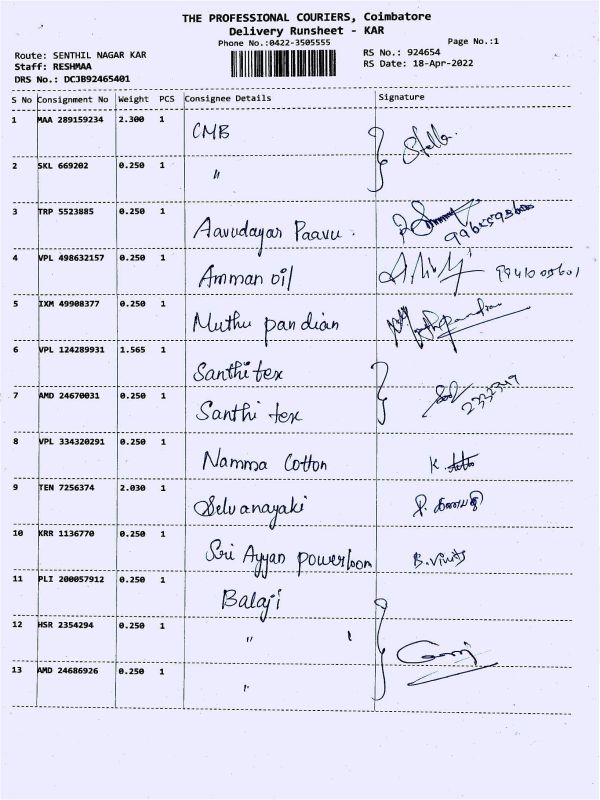 THE PROFESSIONAL COURIERS, Coimbatore
Delivery Runsheet - KAR
Phone No.:0422-3505555
Page No.:1
Route: SENTHIL NAGAR KAR
RS No.: 924654
Staff: RESHMAA
RS Date: 18-Apr-2022
DRS No.: DCJB92465401
S No Consignment No Weight PCS Consignee Details Signature
1 MAA 289159234 2.300 1 CMB Stella
2 SKL 669202 0.250 1 "
3 TRP 5523885 0.250 1 Aavudayar Paavu.
4 VPL 498632157 0.250 1 Amman oil
5 IXM 49908377 0.250 1 Muthu pandian
6 VPL 124289931 1.565 1 Santhi tex
7 AMD 24670031 0.250 1 Santhi tex
8 VPL 334320291 0.250 1 Namma Cotton
9 TEN 7256374 2.030 1 Selvanayaki
10 KRR 1136770 0.250 1 Sri Ayyan powerloom
11 PLI 200057912 0.250 1 Balaji
12 HSR 2354294 0.250 1 "
13 AMD 24686926 0.250 1 "